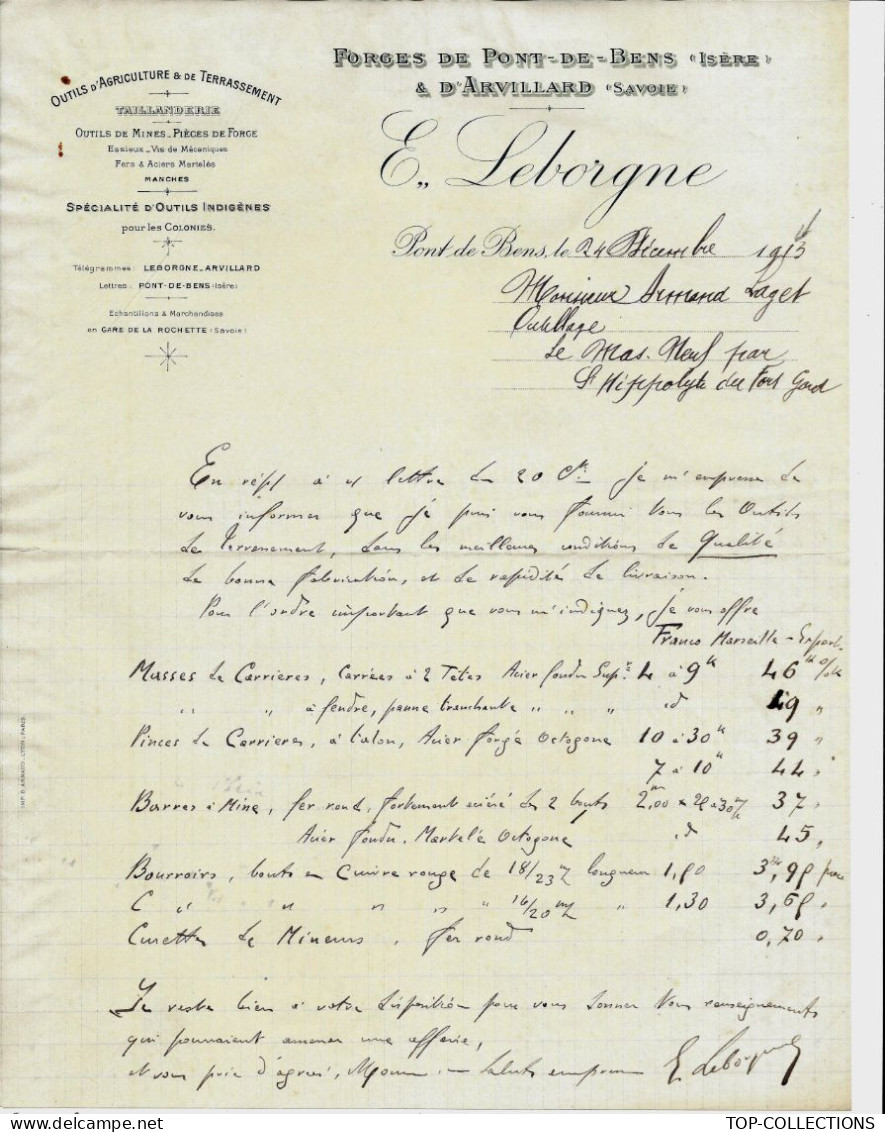 FORGES DE PONT-DE-BENS (ISÈRE)
& D'ARVILLARD (SAVOIE)
E. Leborgne
OUTILS D'AGRICULTURE & DE TERRASSEMENT
TAILLANDERIE
OUTILS DE MINES _ PIÈCES DE FORGE
Essieux _ Vis de Mécaniques
Fers & Aciers Martelés
MANCHES
SPÉCIALITÉ D'OUTILS INDIGÈNES
pour les COLONIES.
Télégrammes: LEBORGNE_ARVILLARD
Lettres: PONT-DE-BENS (Isère)
Echantillons & Marchandises
en GARE DE LA ROCHETTE (Savoie)
Pont de Bens, le 24 Décembre 1913
Monsieur Armand Laget
Outillage
Le Mas. Neuf par
St Hippolyte du Fort Gard
En répse à vt lettre du 20 Ct je m'empresse de
vous informer que je puis vous fournir tous les Outils
de terrassement, dans les meilleures conditions de Qualité
de bonne fabrication, et de rapidité de livraison.
Pour l'ordre important que vous m'indiquez, je vous offre
Franco Marseille - Export
Masses de Carrières, Carrées à 2 Têtes Acier fondu Supr 4 à 9k 46 fr %k
" " à fendre, panne tranchante " " " id 49 "
Pinces de Carrières, à talon, Acier forgé Octogone 10 à 30k 39 "
7 à 10k 44 "
Barres à Mine, fer rond, fortement aciéré les 2 bouts 2m,00 x 28 à 30m/m 37 "
Acier fondu. Martelé Octogone id 45 "
Bourroirs, bouts en Cuivre rouge de 18/23 m/m longueur 1,80 3fr,95 pièce
C " " " " " 16/20 m/m " 1,30 3,65 "
Curettes de Mineurs, fer rond 0,70 "
Je reste bien à votre disposition pour vous donner tous renseignements
qui pourraient amener une affaire,
et vous prie d'agréer, Monsieur, Saluts empressés
E. Leborgne
IMP. B. ARNAUD, LYON-PARIS
TOP-COLLECTIONS